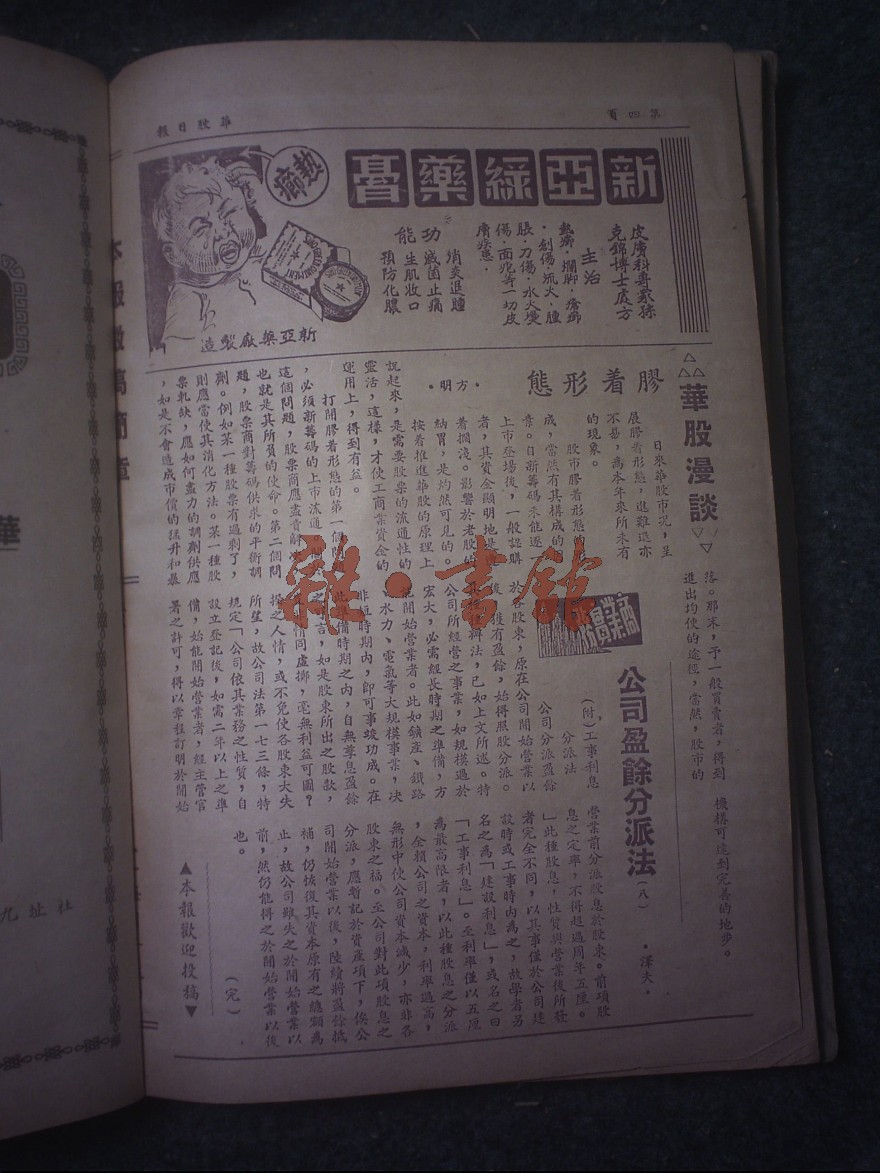 第四頁
華股日報
新亞綠藥膏
皮膚科專家孫
克錦博士處方
主治
熱癤·爛脚·瘡癤
·創傷·流火·腫
脹·刀傷·水火燙
傷·面疱等一切皮
膚疾患·
功能
消炎退腫
滅菌止痛
生肌收口
預防化膿
熱癤
新亞藥廠製造
華股漫談
膠着形態
·方明·
日來華股市况,呈
展膠着形態,進難退亦
不易,為本年來所未有
的現象。
股市膠着形態的
成,當然有其構成的
業。自新籌碼未能逐一
上市登場後,一般認購
者,其資金顯明地是
着擱淺。影響於老股的
納胃,是灼然可見的。
按着推進華股的原理上
說起來,是需要股票的流通性的
靈活,這樣,才使工商業資金的
運用上,得到有益。
打開膠着形態的第一個
,必須新籌碼的上市流通
這個問題,股票商應盡責解
也就是其所負的使命。第二個問
題,股票商對籌碼供求的平衡調
劑。例如某一種股票有過剩了,
則應當使其消化方法。某一種股
票軋缺,應如何盡力的調劑供應
,如是不會造成市價的猛升和暴
落。那末,予一般買賣者,得到
進出均使的途徑,當然,股市的
機構可達到完善的地步。
公司盈餘分派法(八)
·澤夫·
(附)工事利息
分派法
公司分派盈餘
於各股東,原在公司開始營業以
後,獲有盈餘,始得照股分派。
辦法,已如上文所述。特
公司所經營之事業,如規模過於
宏大,必需經長時期之準備,方
能開始營業者。此如鑛產、鐵路
水力、電氣等大規模事業,决
非短時期内,即可事竣功成。在
此準備時期之内,自無孳息盈餘
之可言,如是股東所出之股款,
情同虛擲,毫無利益可圖?
揆之人情,或不免使各股東大失
所望,故公司法第一七三條,特
規定「公司依其業務之性質,自
設立登記後,如需二年以上之準
備,始能開始營業者,經主管官
署之許可,得以章程訂明於開始
營業前分派股息於股東。前項股
息之定率,不得超過周年五厘。
」此種股息,性質與營業後所發
者完全不同,以其事僅於公司建
設時或工事時内為之,故學者另
名之為「建設利息」,或名之曰
「工事利息」。至利率僅以五厘
為最高限者,以此種股息之分派
,全賴公司之資本,利率過高,
無形中使公司資本減少,亦非各
股東之福。至公司對此項股息之
分派,應暫記於資產項下,俟公
司開始營業以後,陸續將盈餘抵
補,仍恢復其資本原有之總額為
止,故公司雖失之於開始營業以
前,然仍能得之於開始營業以後
也。
(完)
▲本報歡迎投稿▼
雜·書館
社址九